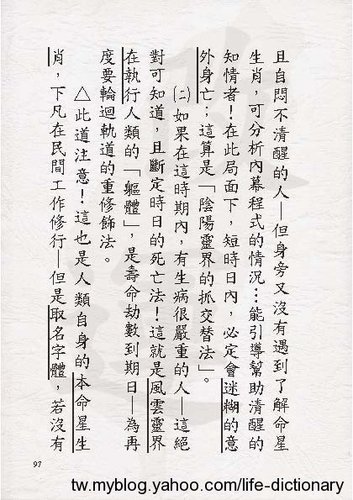 且自悶不清醒的人—但身旁又沒有遇到了解命星
生肖，可分析內幕程式的情況…能引導幫助清醒的
知情者！在此局面下，短時日內，必定會迷糊的意
外身亡；這算是「陰陽靈界的抓交替法」。
㈡如果在這時期內，有生病很嚴重的人—這絕
對可知道，且斷定時日的死亡法！這就是風雲靈界
在執行人類的「軀體」，是壽命劫數到期日—為再
度要輪迴軌道的重修飾法。
△此道注意！這也是人類自身的本命星生
肖，下凡在民間工作修行—但是取名字體，若沒有
97
tw.myblog.yahoo.com/life-dictionary